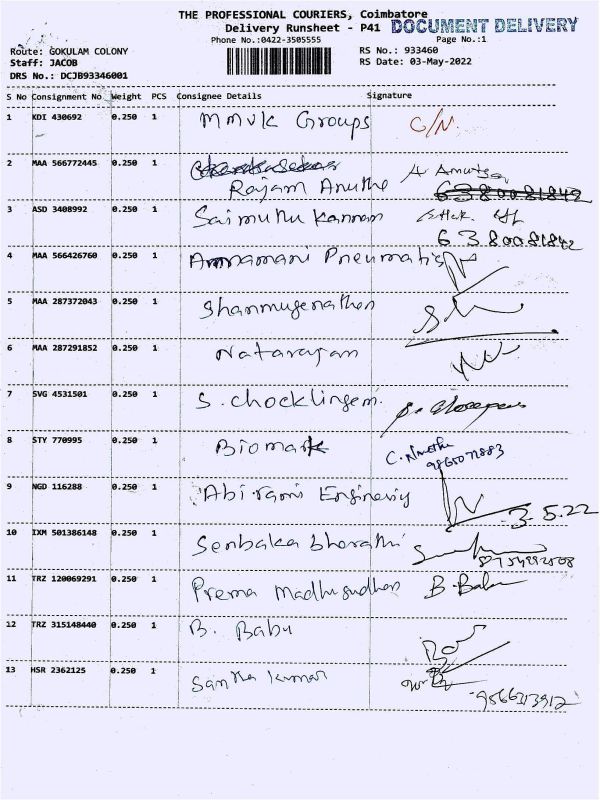 THE PROFESSIONAL COURIERS, Coimbatore
Delivery Runsheet - P41 DOCUMENT DELIVERY
Phone No.:0422-3505555 Page No.:1
Route: GOKULAM COLONY RS No.: 933460
Staff: JACOB RS Date: 03-May-2022
DRS No.: DCJB93346001
S No Consignment No Weight PCS Consignee Details Signature
1 KDI 430692 0.250 1 MMVK Groups C/N.
2 MAA 566772445 0.250 1
Rajam Anuthe 6380081842
3 ASD 3408992 0.250 1 Saimuthu Kannan
6380081842
4 MAA 566426760 0.250 1 Annamani Pneumatis
5 MAA 287372043 0.250 1 Shanmugenathan
6 MAA 287291852 0.250 1 Natarajan
7 SVG 4531501 0.250 1 S. Chocklingem.
8 STY 770995 0.250 1 Biomark C. Nivetha
9865071883
9 NGD 116288 0.250 1 Abi rami Engineriy 3.5.22
10 IXM 501386148 0.250 1 Senbaka bharathi
11 TRZ 120069291 0.250 1 Prema Madhusudhan B. Babu
12 TRZ 315148440 0.250 1 B. Babu
13 HSR 2362125 0.250 1 Santha kumar
9566313912